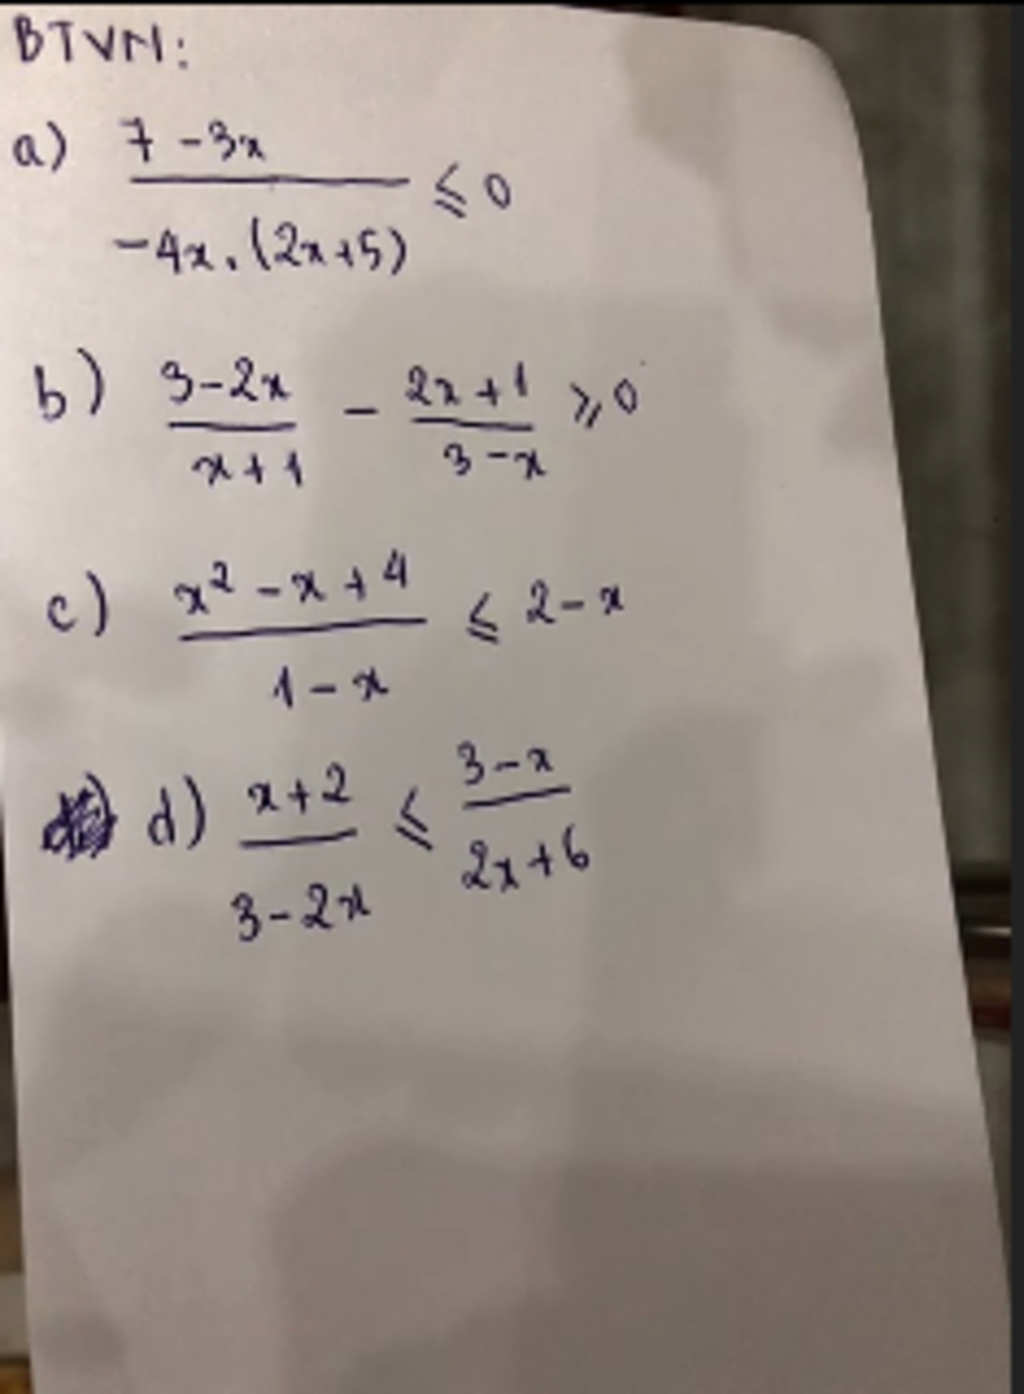 BTVN:
a) 7 - 3x / -4x.(2x+5) ⩽ 0
b) 3-2x / x+1 - 2x+1 / 3-x ⩾ 0
c) x² - x + 4 / 1-x ⩽ 2-x
d) x+2 / 3-2x ⩽ 3-x / 2x+6